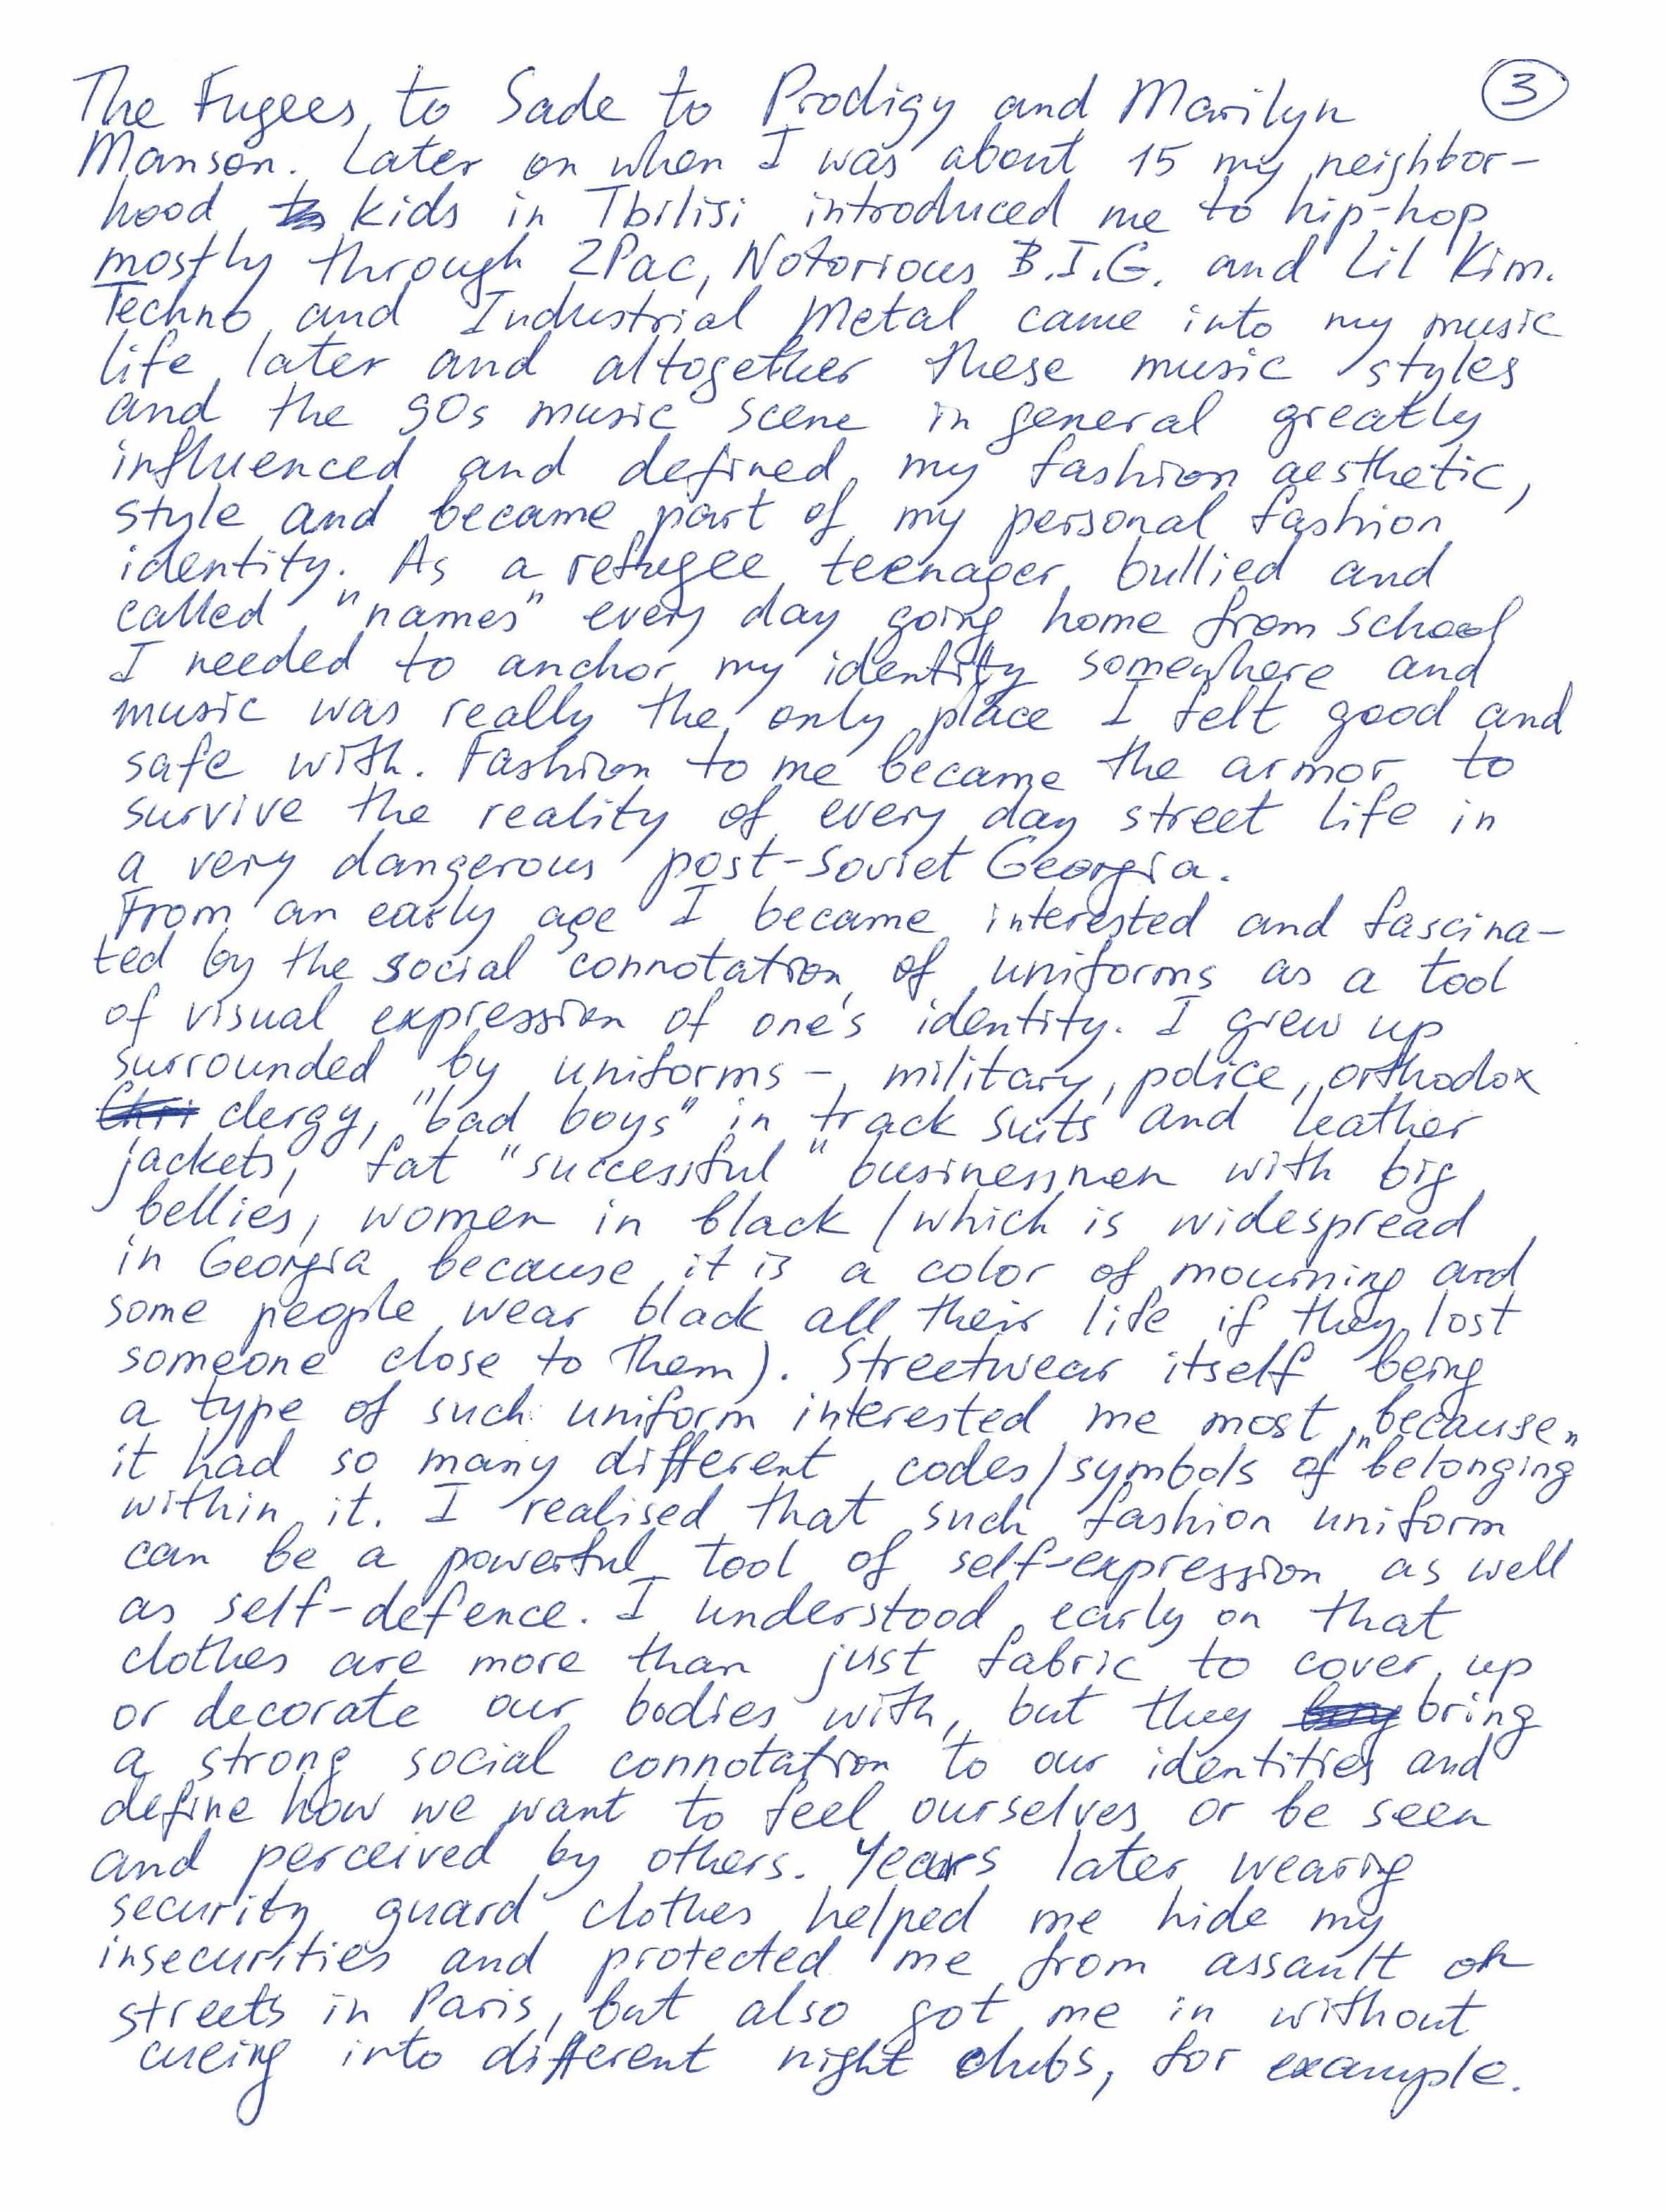 The Fugees, to Sade to Prodigy and Marilyn
3
Manson. Later on when I was about 15 my neighbor-
hood kids in Tbilisi introduced me to hip-hop,
mostly through 2Pac, Notorious B.I.G. and Lil Kim.
Techno and Industrial Metal came into my music
life later and altogether these music styles
and the 90s music scene in general greatly
influenced and defined my fashion aesthetic,
style and became part of my personal fashion
identity. As a refugee teenager bullied and
called "names" every day going home from school
I needed to anchor my identity somewhere and
music was really the only place I felt good and
safe with. Fashion to me became the armor to
survive the reality of every day street life in
a very dangerous post-Soviet Georgia.
From an early age I became interested and fascina-
ted by the social connotation of uniforms as a tool
of visual expression of one's identity. I grew up
surrounded by uniforms - military, police, orthodox
clergy, "bad boys" in track suits and leather
jackets, fat "successful" businessmen with big
bellies, women in black (which is widespread
in Georgia because it is a color of mourning and
some people wear black all their life if they lost
someone close to them). Streetwear itself being
a type of such uniform interested me most, because
it had so many different codes/symbols of "belonging"
within it. I realised that such fashion uniform
can be a powerful tool of self-expression as well
as self-defence. I understood early on that
clothes are more than just fabric to cover up
or decorate our bodies with, but they bring
a strong social connotation to our identities and
define how we want to feel ourselves or be seen
and perceived by others. Years later wearing
security guard clothes helped me hide my
insecurities and protected me from assault on
streets in Paris, but also got me in without
cueing into different night clubs, for example.